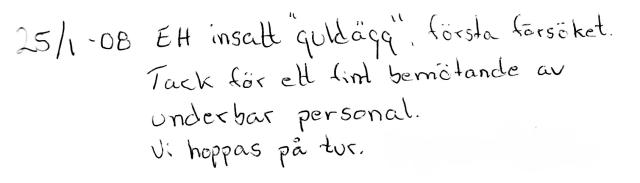 25/1-08 EH insatt "guldägg", första försöket.
Tack för ett fint bemötande av
underbar personal.
Vi hoppas på tur.